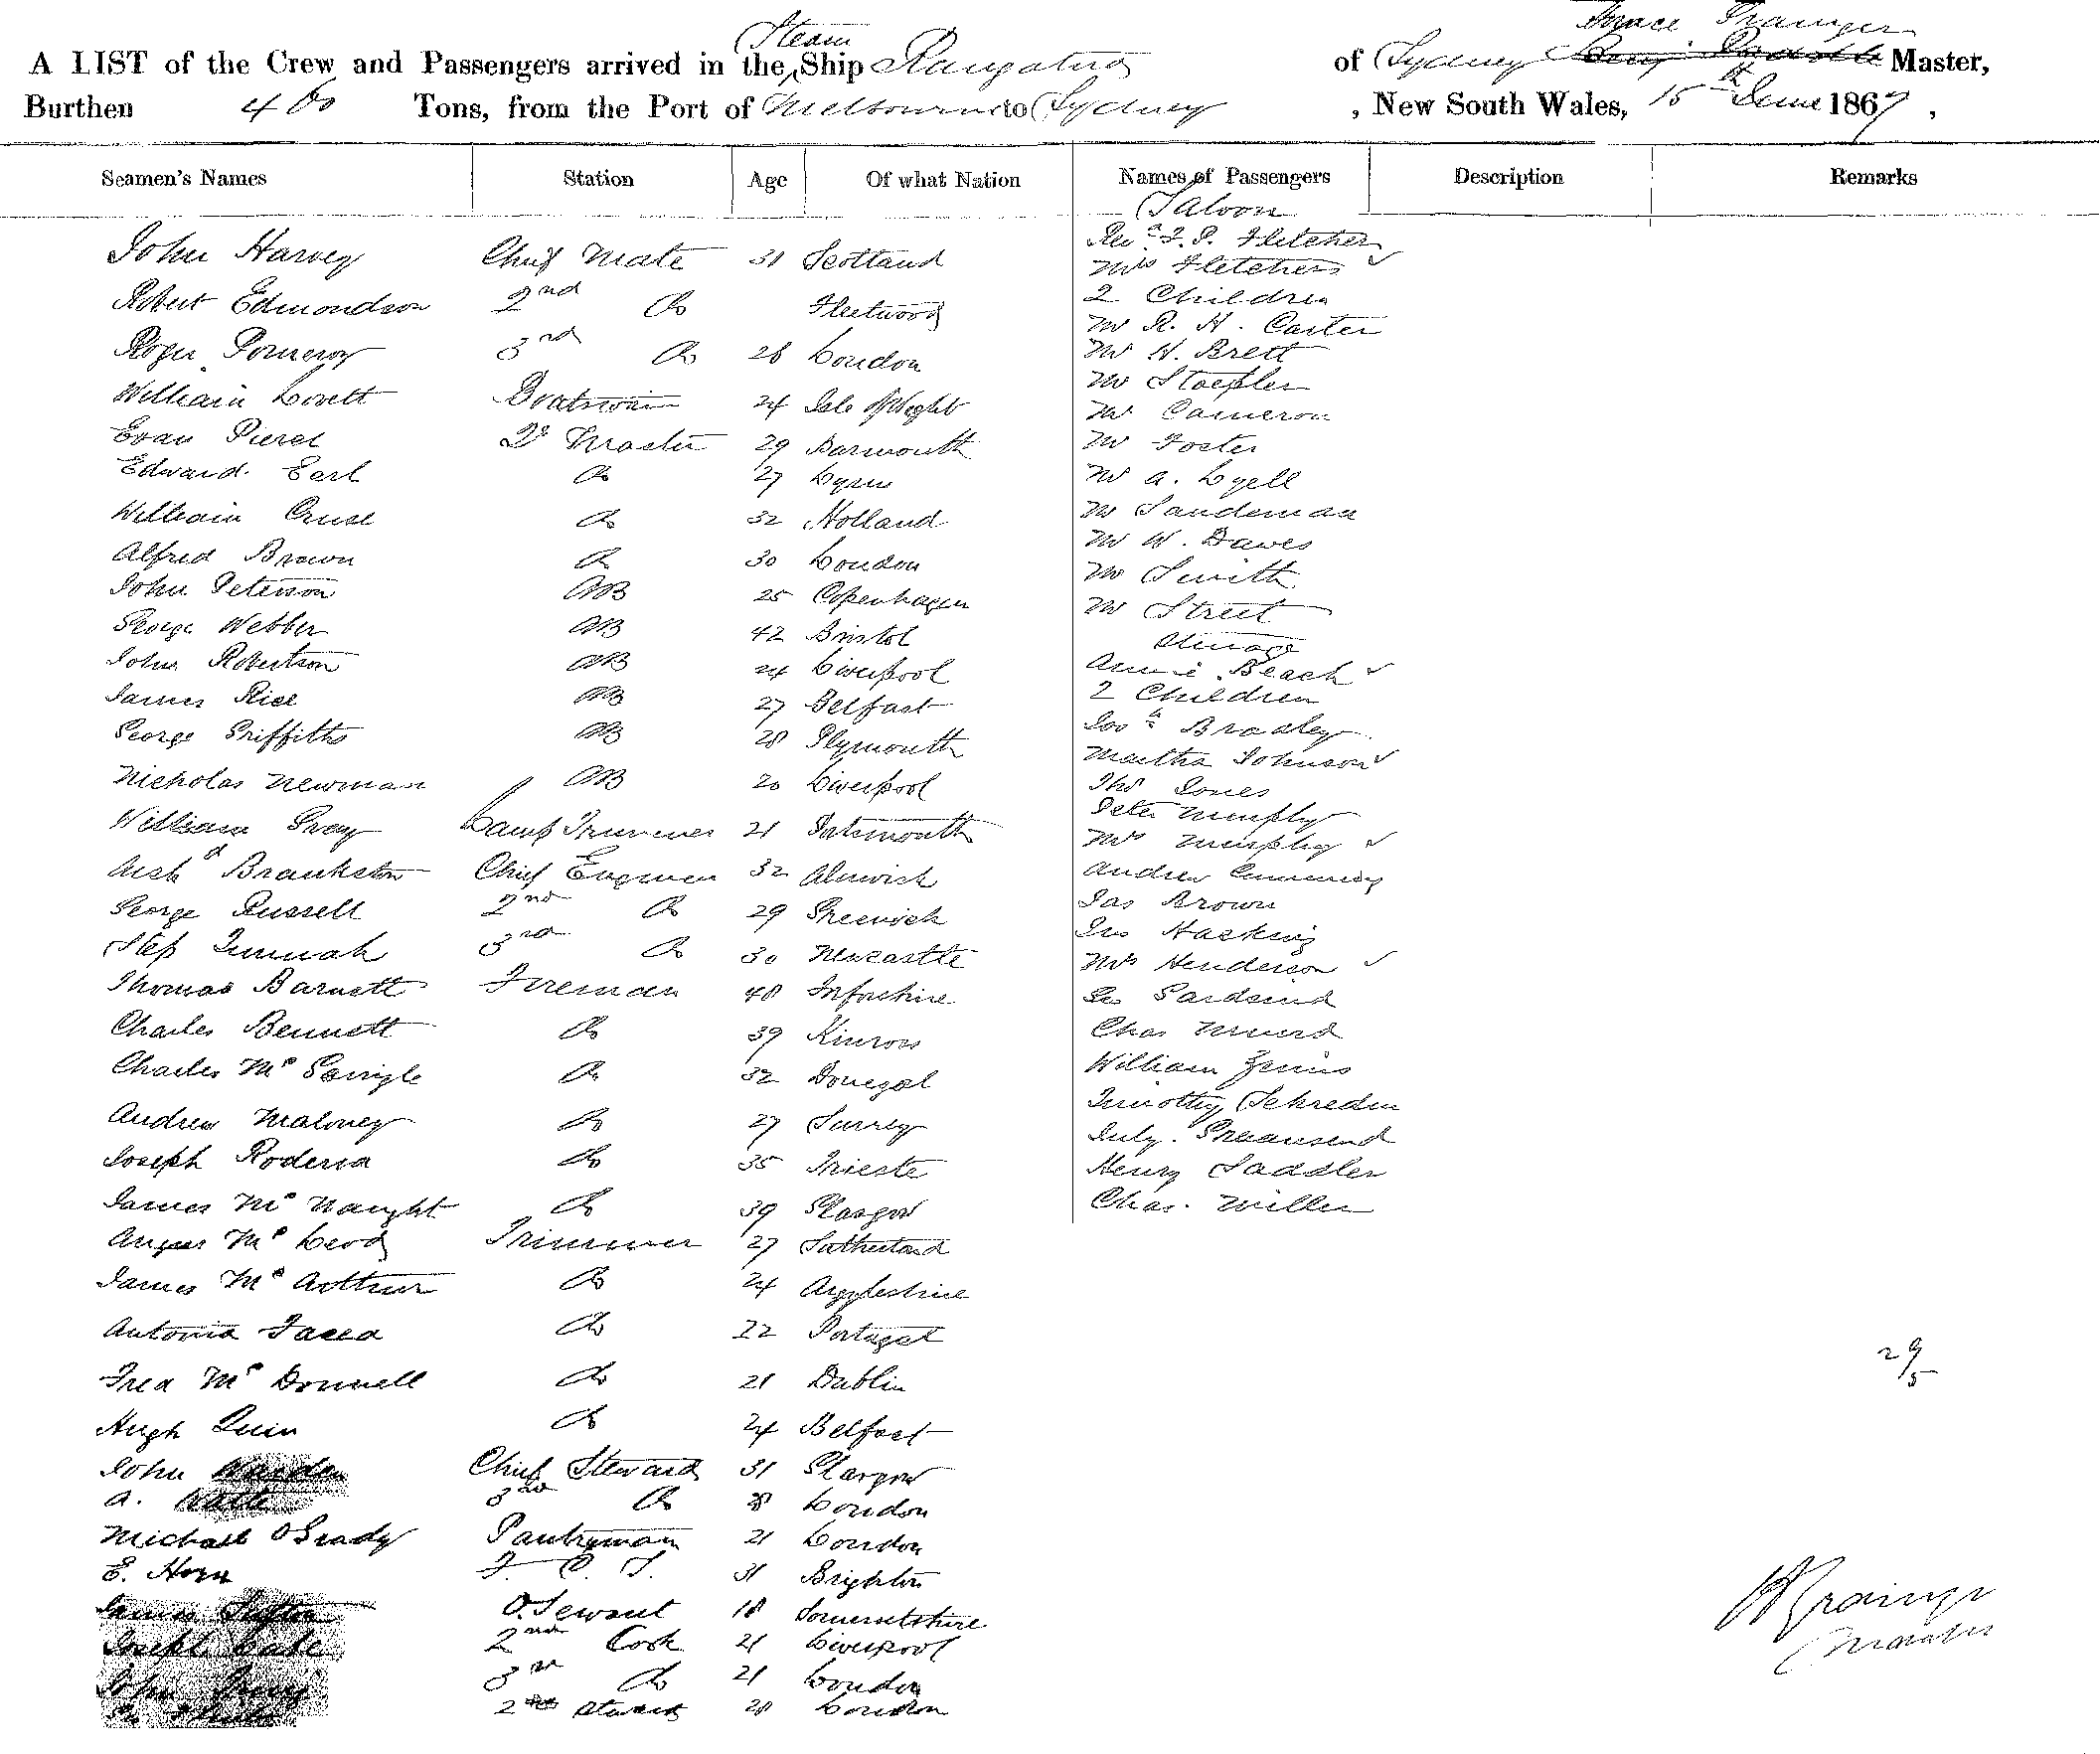 Horace Grainger
Steam
A LIST of the Crew and Passengers arrived in the Ship Rangatira of Sydney Master,
Burthen 460 Tons, from the Port of Melbourne to Sydney, New South Wales, 15th June 1867,
Seamen's Names Station Age Of what Nation Names of Passengers Description Remarks
Saloon
John Harvey Chief Mate 31 Scotland
Robert Edmondson 2nd Do Fleetwood
Roger Pomeroy 3rd Do 28 London
William Lovett Boatswain 24 Isle of Wight
Evan Pierce Qr Master 29 Barmouth
Edward Earl Do 27 Lynn
William Cruse Do 32 Holland
Alfred Brown Do 30 London
John Peterson AB 25 Copenhagen
George Webber AB 42 Bristol
John Robertson AB 24 Liverpool
James Rice AB 27 Belfast
George Griffiths AB 28 Plymouth
Nicholas Newman AB 20 Liverpool
William Gray Lamp Trimmer 21 Portsmouth
Archd Brankston Chief Engineer 32 Alnwick
George Russell 2nd Do 29 Greenwich
Step 3rd Do 30 Newcastle
Thomas Barnett Fireman 48
Charles Bennett Do 39 Kinross
Charles McGonigle Do 32 Donegal
Andrew Maloney Do 27 Surrey
Joseph Roderia Do 35 Trieste
James McNaught Do 39 Glasgow
Angus McLeod Trimmer 27 Sutherland
James McArthur Do 24 Argyleshire
Antonia Do 22 Portugal
Fred McDonnell Do 21 Dublin
Hugh Quin Do 24 Belfast
John Chief Steward 31 Glasgow
A. Do London
Michael OGrady Pantryman 21 London
E. Horn F. C. S. 31 Brighton
James 18 Somersetshire
Joseph 2nd Cook 21 Liverpool
John 3rd Do 21 London
2nd 28 London
Revd J. P. Fletcher
Mrs Fletcher
2 Children
Mr R. H. Carter
Mr H. Brett
Mr
Mr Cameron
Mr Foster
Mr A. Lyell
Mr Sandeman
Mr W. Dawes
Mr Smith
Mr Street
Steerage
Annie Beach
2 Children
Bradley
Martha Johnson
Thos Jones
Peter Murphy
Mrs Murphy
Andrew
Jas Brown
Geo Hasking
Mrs Henderson
Geo
Chas
William
Timothy
July
Henry Saddler
Chas. Miller
29/5
H Grainger
Master